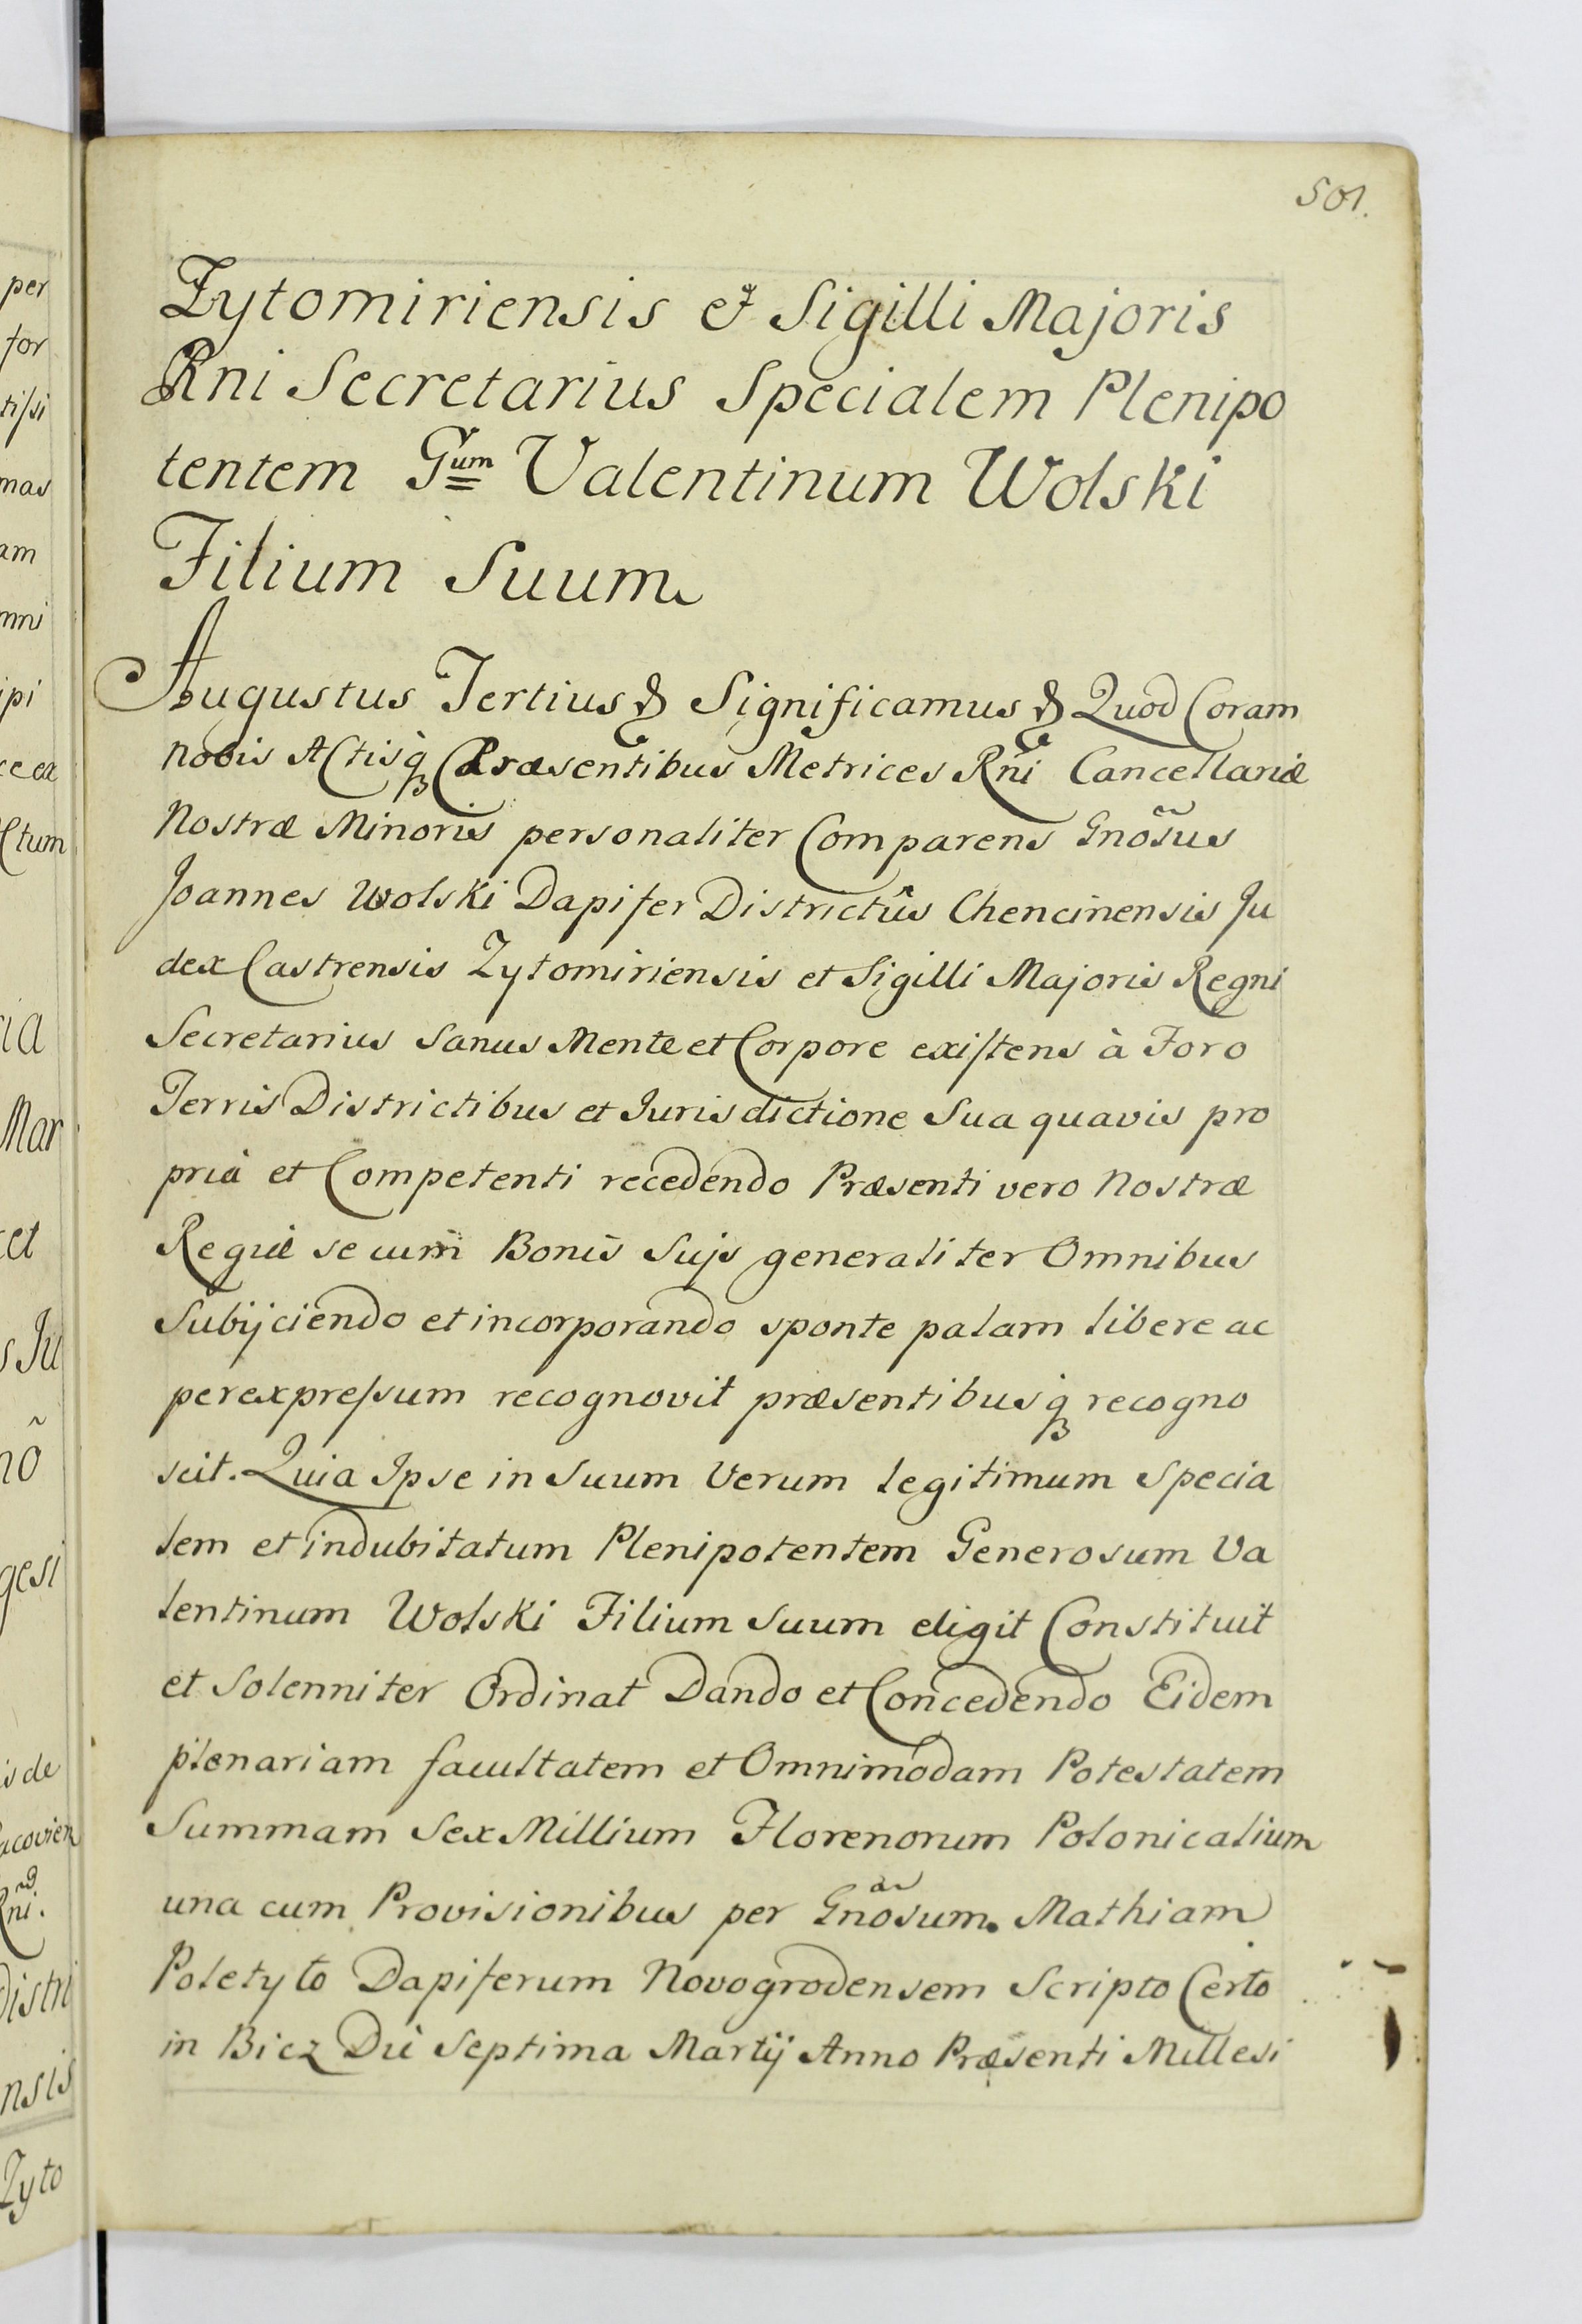 501.
Zytomiriensis et Sigilli Majoris
Rni Secretarius Specialem Plenipo
tentem Gum Valentinum Wolski
Filium Suum
Augustus Tertius & Significamus & Quod Coram
nobis Actisq Præsentibus Metrices Rni Cancellariæ
Nostræ Minoris personaliter Comparens Gnosus
Joannes Wolski Dapifer Districtûs Chencinensis Ju
dex Castrensis Zytomiriensis et Sigilli Majoris Regni
Secretarius Sanus Mente et Corpore existens à Foro
Terris Districtibus et Jurisdictione Sua quavis pro
priâ et Competenti recedendo Præsenti vero Nostræ
Regiæ se cum Bonis Sujs generaliter Omnibus
Subijciendo et incorporando sponte palam libere ac
per expressum recognovit præsentibusq recogno
scit. Quia Ipse in Suum Verum legitimum Specia
lem et indubitatum Plenipotentem Generosum Va
lentinum Wolski Filium Suum eligit Constituit
et Solenniter Ordinat Dando et Concedendo Eidem
plenariam facultatem et Omnimodam Potestatem
Summam Sex Millium Florenorum Polonicalium
una cum Provisionibus per Gnosum. Mathiam
Poletyło Dapiferum Novogrodensem Scripto Certo
in Bicz Die Septima Martij Anno Præsenti Millesi
per
tor
tissi
mas
am
mni
ipi
ctum
ria
Mar
et
s Ju
nõ
gesi
is de
acovien
Rni.
Distri
nsis
Zyto